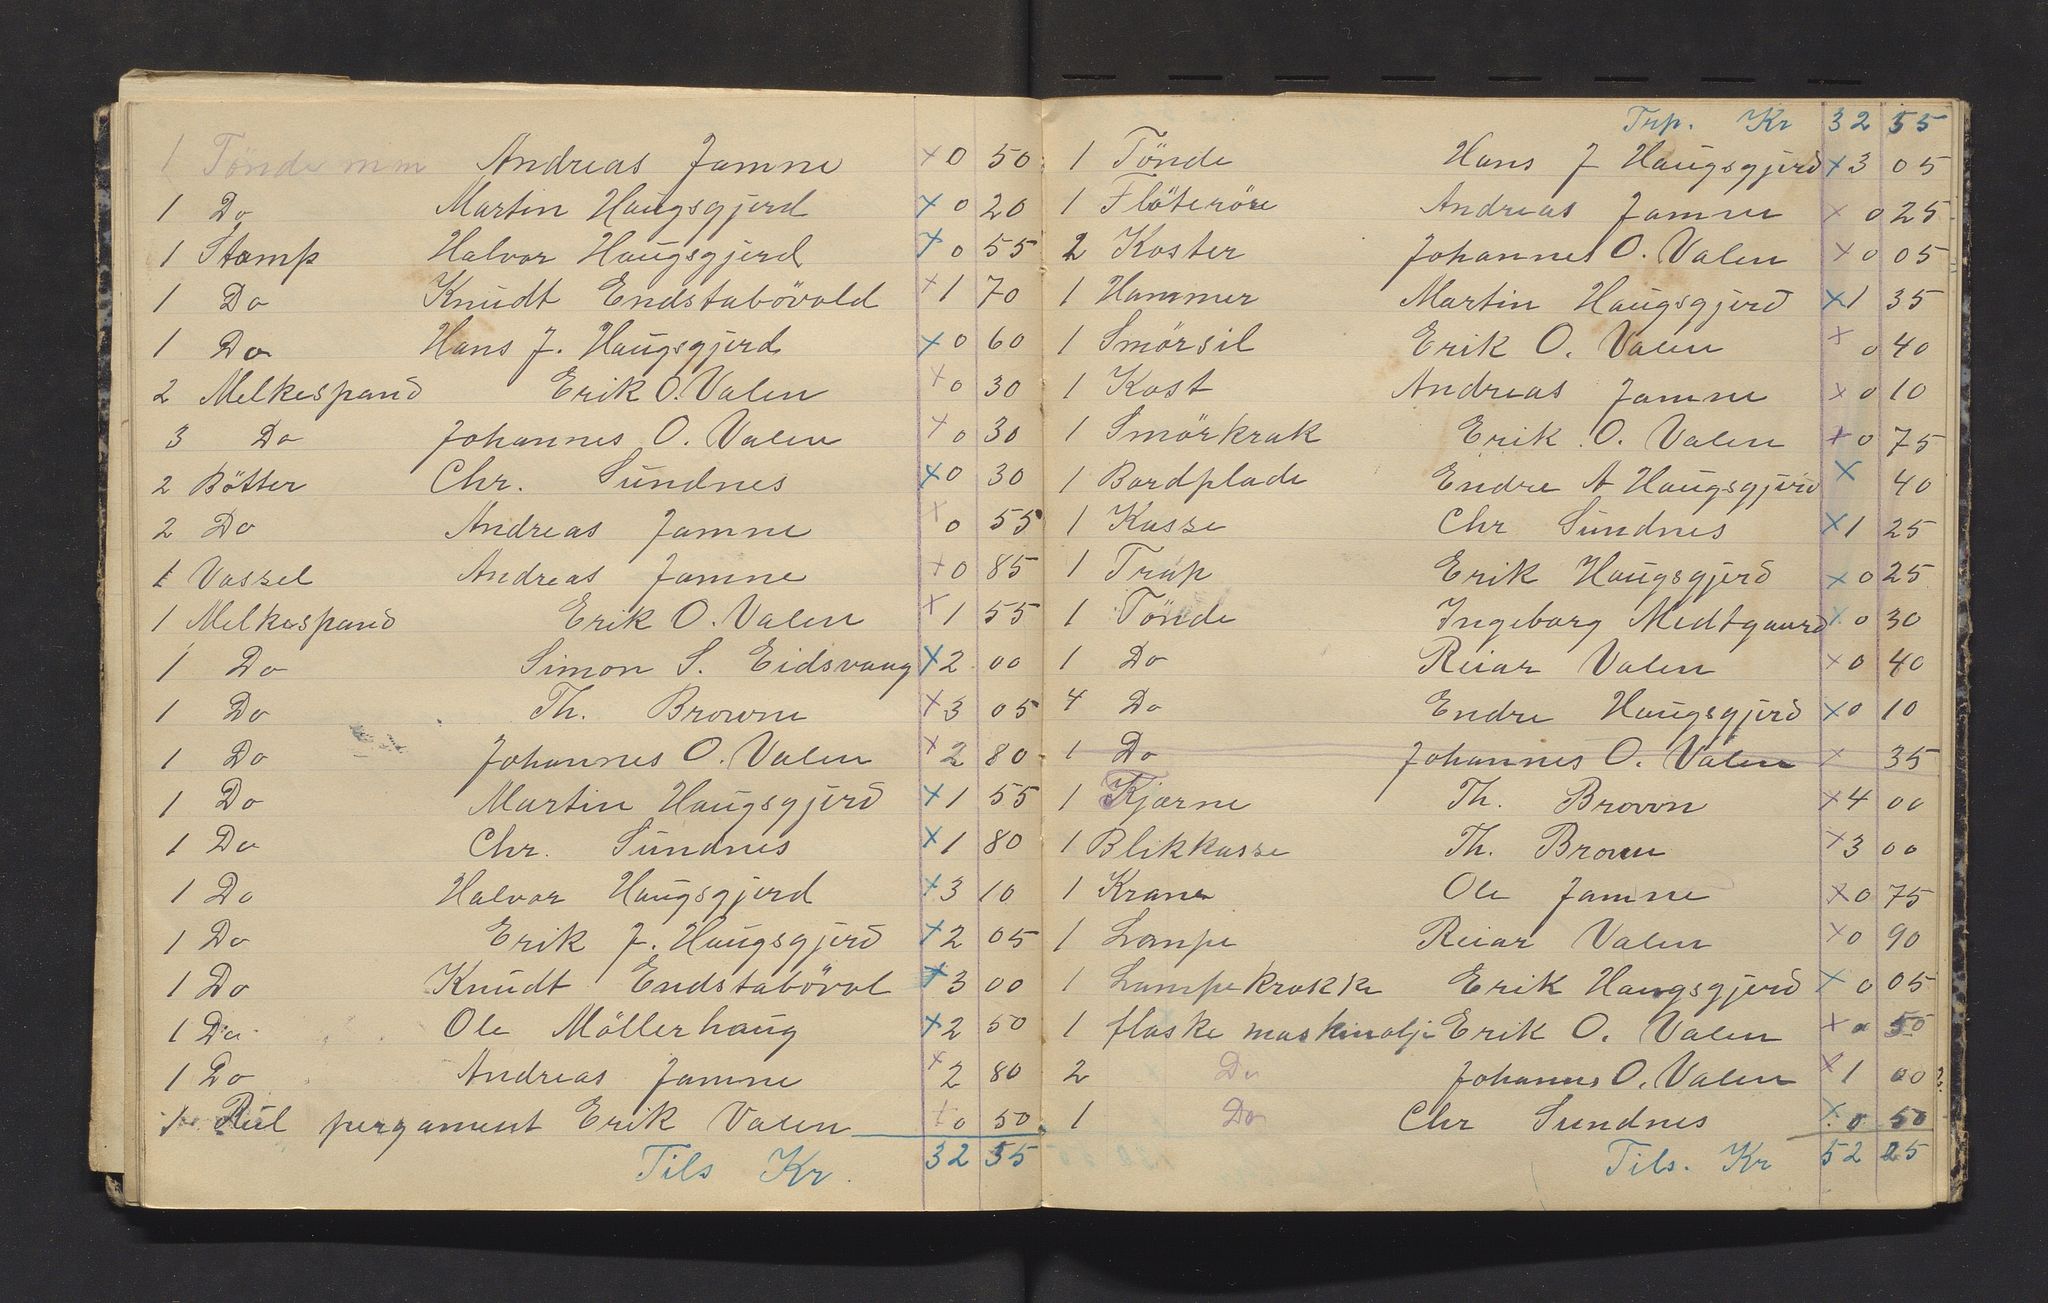 1 Tönde m m Andreas Jamne × 0 50
1 Do Martin Haugsgjerd × 0 20
1 Stamp Halvor Haugsgjerd × 0 55
1 Do Knudt Endstabövold × 1 70
1 Do Hans J. Haugsgjerd × 0 60
2 Melkespand Erik O. Valen × 0 30
3 Do Johannes O. Valen × 0 30
2 Bötter Chr. Sundnes × 0 30
2 Do Andreas Jamne × 0 55
1 Vassel Andreas Jamne × 0 85
1 Melkespand Erik O. Valen × 1 55
1 Do Simon S. Eidsvaag × 2 00
1 Do Th. Browne × 3 05
1 Do Johannes O. Valen × 2 80
1 Do Martin Haugsgjerd × 1 55
1 Do Chr. Sundnes × 1 80
1 Do Halvor Haugsgjerd × 3 10
1 Do Erik J. Haugsgjerd × 2 05
1 Do Knudt Endstabövol × 3 00
1 Do Ole Möllerhaug × 2 50
1 Do Andreas Jamne × 2 80
1 Rul pergament Erik Valen × 0 50
Tils Kr. 32 55
Trp. Kr 32 55
1 Tönde Hans J Haugsgjerd × 3 05
1 Flöteröre Andreas Jamne × 0 25
2 Koster Johannes O. Valen × 0 05
1 Hammer Martin Haugsgjerd × 1 35
1 Smörsil Erik O. Valen × 0 40
1 Kost Andreas Jamne × 0 10
1 Smörkrak Erik O. Valen × 0 75
1 Bordplade Endre A Haugsgjerd × 40
1 Kasse Chr Sundnes × 1 25
1 Trap Erik Haugsgjerd × 0 25
1 Tönde Ingeborg Medtgaard × 0 30
1 Do Reiar Valen × 0 40
4 Do Endre Haugsgjerd × 0 10
1 Do Johannes O. Valen × 35
1 Kjærne Th. Brown × 4 00
1 Blikkasse Th. Brown × 3 00
1 Krane Ole Jamne × 0 75
1 Lampe Reiar Valen × 0 90
1 Lampekrakk Erik Haugsgjerd × 0 05
1 flaske maskinolje Erik O. Valen × 0 50
2 Do Johannes O. Valen × 1 00
1 Do Chr Sundnes × 0 50
Tils. Kr 52 25